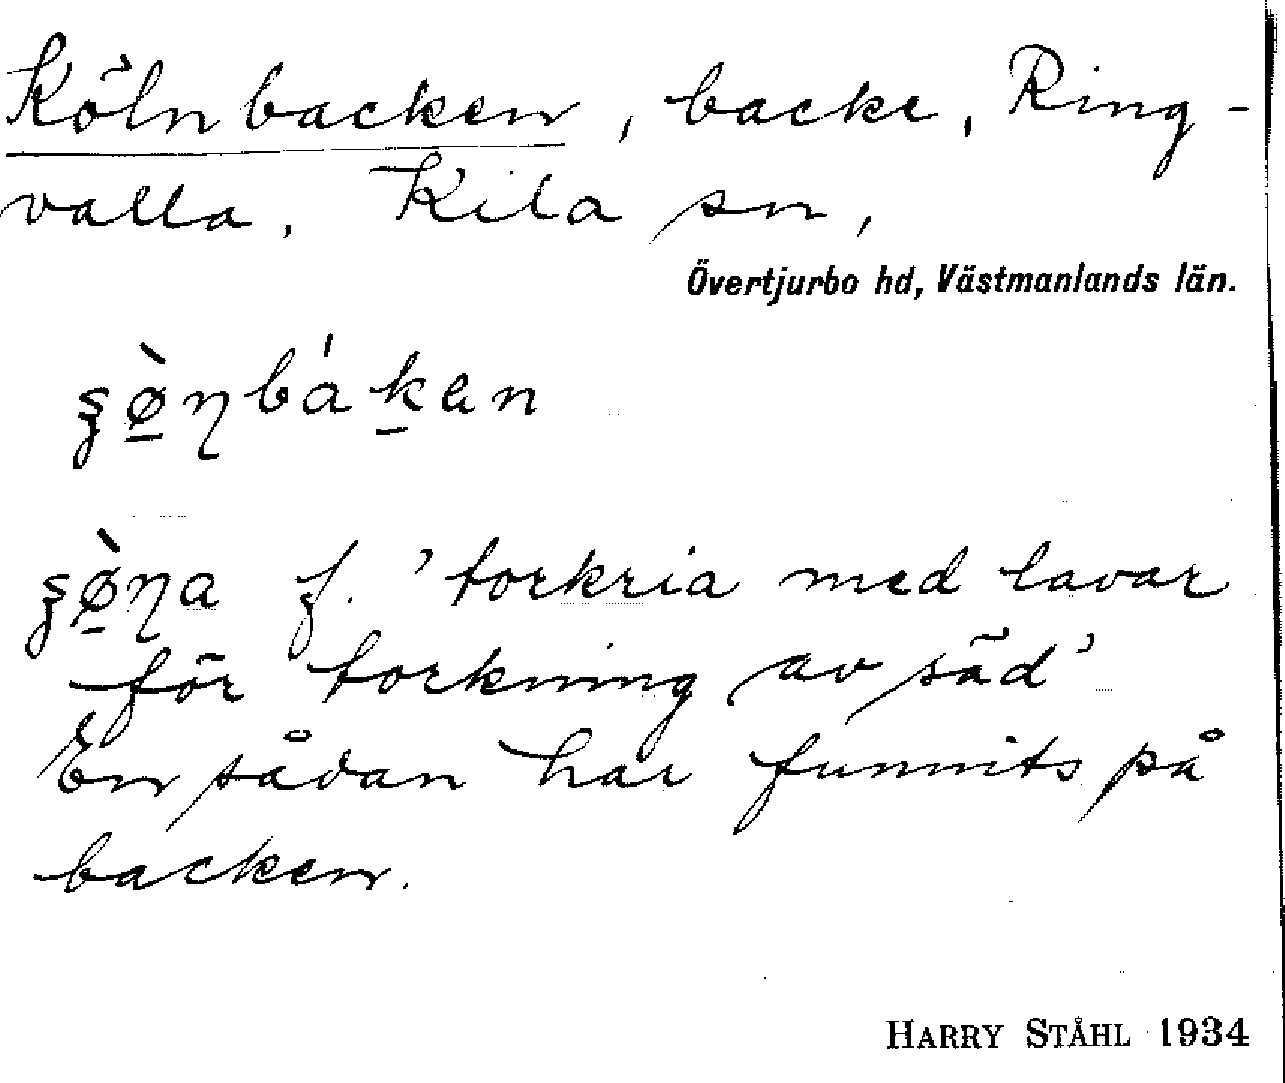 Kölnbacken, backe, Ring-
valla, Kila sn,
Övertjurbo hd, Västmanlands län.
f. 'torkria med lavar
för torkning av säd'
En sådan har funnits på
backen.
HARRY STÅHL 1934